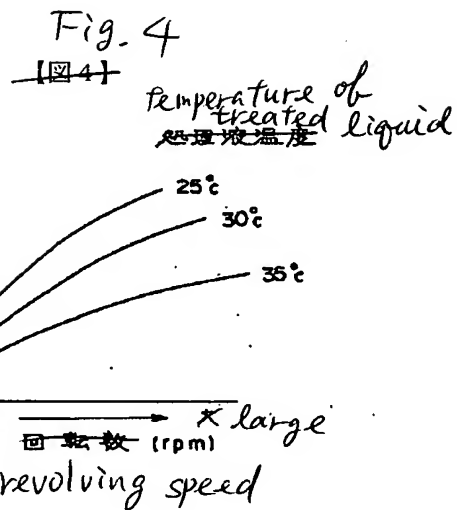 Fig. 4
【図4】
temperature of
treated liquid
処理液温度
25℃
30℃
35℃
大 large
回転数 (rpm)
revolving speed